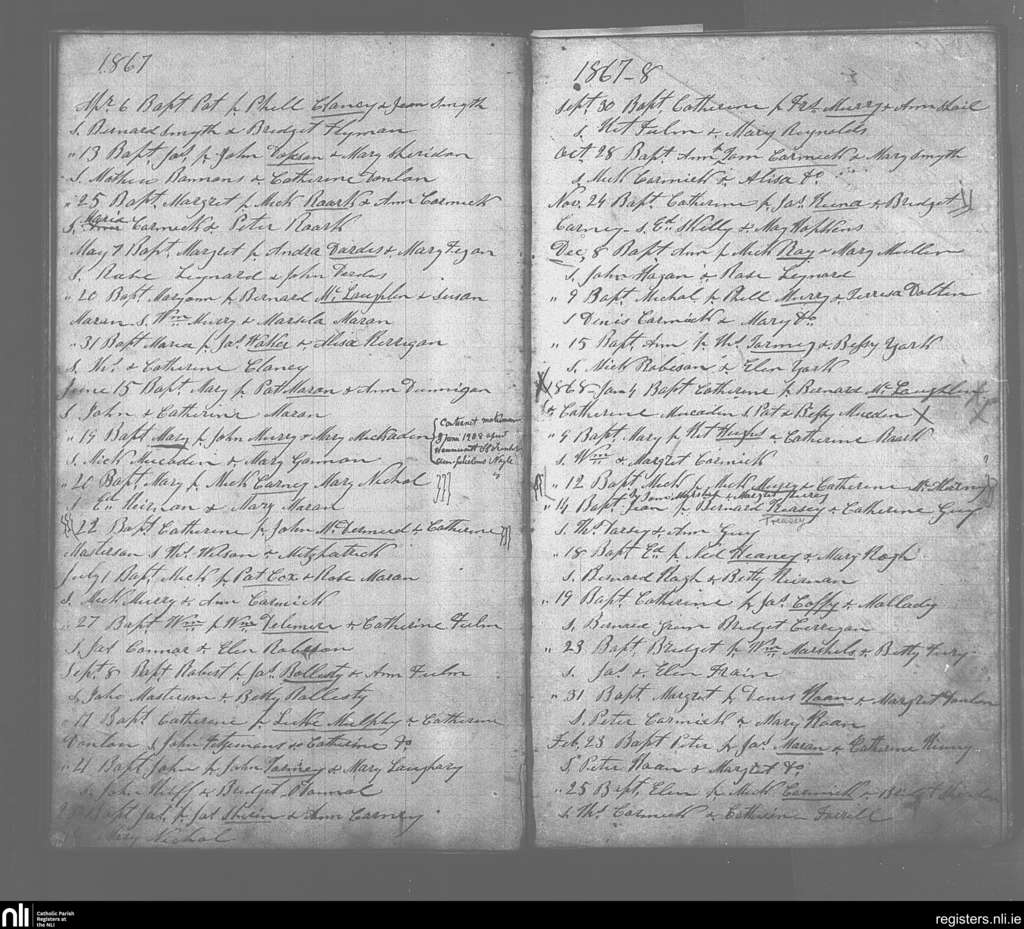 1867
Apr. 6 Bapt Pat p Phell Clancy & Jean Smyth
S. Bernard Smyth & Bridget Flyman
" 13 Bapt. Jas. p John Dopson & Mary Sheridan
S. Mathew Bannans & Catherine Donlan
" 25 Bapt. Margret p Mick Roark & Ann Cormick
S. Maria Cormick & Peter Roark
May 7 Bapt. Margret p Andra Dardis & Mary Fegan
S. Rose Legnard & John Dardus
" 20 Bapt Maryann p Bernard Mc Laughlin & Susan
Maran S. Wm Murry & Marsela Maran
" 31 Bapt Maria p Jas Kaher & Alisa Kerrigan
S. Thos. & Catherine Clancy
June 15 Bapt. Mary p Pat Maran & Ann Dunnigan
S. John & Catherine Maran
" 19 Bapt Mary p John Murry & Mary MacKaden
Contraxit
9 June 1908 apud
S. Mick Mucaden & Mary Gannon
" 20 Bapt. Mary p Mick Carney Mary Nichol
S. Ed. Heirnan & Mary Maran
" 22 Bapt Catherine p John Mc Dermeid & Catherine
Masterson S Thos. Wilson & Mitzpatrick
July 1 Bapt. Mick p Pat Cox & Rose Maran
S. Mick Murry & Ann Carmick
" 27 Bapt Wm p Wm Delimere & Catherine Fulm
S. Jas Connor & Elen Robeson
Sept. 8 Bapt Robert p Jas. Bollesty & Ann Fulm
S. John Masterson & Betty Ballesty
" 17 Bapt. Catherine p Luke Mulphy & Catherine
Donlan S John Fitzemans & Catherine Do
" 21 Bapt John p John Tormey & Mary Langary
S. John & Bridget
Bapt Jas. p Jas & Ann Carney
Mary Nichol
1867-8
Sept. 30 Bapt. Catherine p Frs. Murry & Ann
S. Kit Fulm & Mary Reynolds
Oct. 28 Bapt. Ann p Tom Cormick & Mary Smyth
S Mick Cormick & Alisa Do
Nov. 24 Bapt Catherine p Jas. Reina & Bridget
Carney - S. Ed. Skilly & May Hopkins
Dec. 8 Bapt Ann p Mick Ray & Mary Mullen
S. John Hagan & Rose Legnard
" 9 Bapt. Michol p Phell Murry & Terresa Dalten
S Denis Cormick & Mary Do
" 15 Bapt Ann p Thos. Tormey & Bessy York
S. Mick Robeson & Elen York
X 1868 - Jan 4 Bapt Catherine p Bernard Mc Laughlin
& Catherine Mucaden S Pat & Bessy Mucden X
" 9 Bapt. Mary p Kit Hughs & Catherine Roark
S. Wm & Margret Cormick
" 12 Bapt Mick p Mick Murry & Catherine Mc
S. Tom Murtagh & Margret
" 14 Bapt. Jean p Bernard Kearsey & Catherine Guy
S. Thos. Darsey & Ann Guy
" 18 Bapt Ed. p Ned Heaney & Mary Rogh
S. Bernard Rogh & Betty Keirnan
" 19 Bapt. Catherine p Jas. Coffy & Mallady
S. Bernard Bridget Corrigan
" 23 Bapt. Bridget p Wm Marshels & Betty Fury
S. Jas. & Elen Frain
" 31 Bapt. Margret p Denis Roan & Margret Donlon
S. Peter Cormick & Mary Roan
Feb. 23 Bapt Peter p Jas. Maran & Catherine
S. Peter Roan & Margret Do
" 25 Bapt. Elen p Mick Cormick & Bridget
S. Thos. Cormick & Catherine Farrell
nli Catholic Parish Registers at the NLI
registers.nli.ie